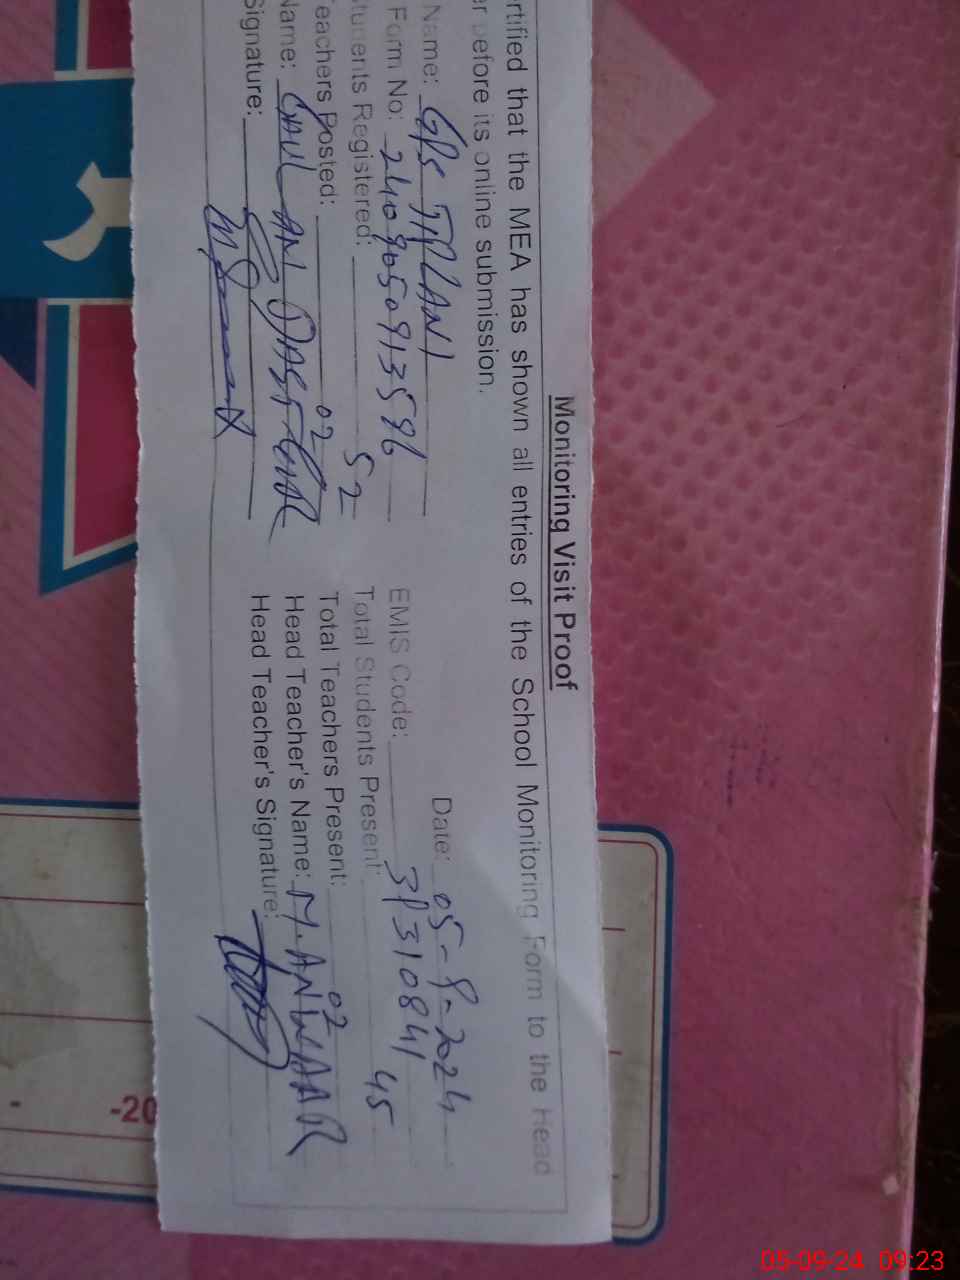 Monitoring Visit Proof
ertified that the MEA has shown all entries of the School Monitoring Form to the Head
er before its online submission.
Date: 05-9-2024
Name: GPS TIPLANI
Form No: 2409050913596 EMIS Code: 31310841
Students Registered: 52 Total Students Present: 45
Teachers Posted: 02 Total Teachers Present: 02
Name: Head Teacher's Name: M.ANWAAR
Signature: Head Teacher's Signature:
-20
05-09-24 09:23